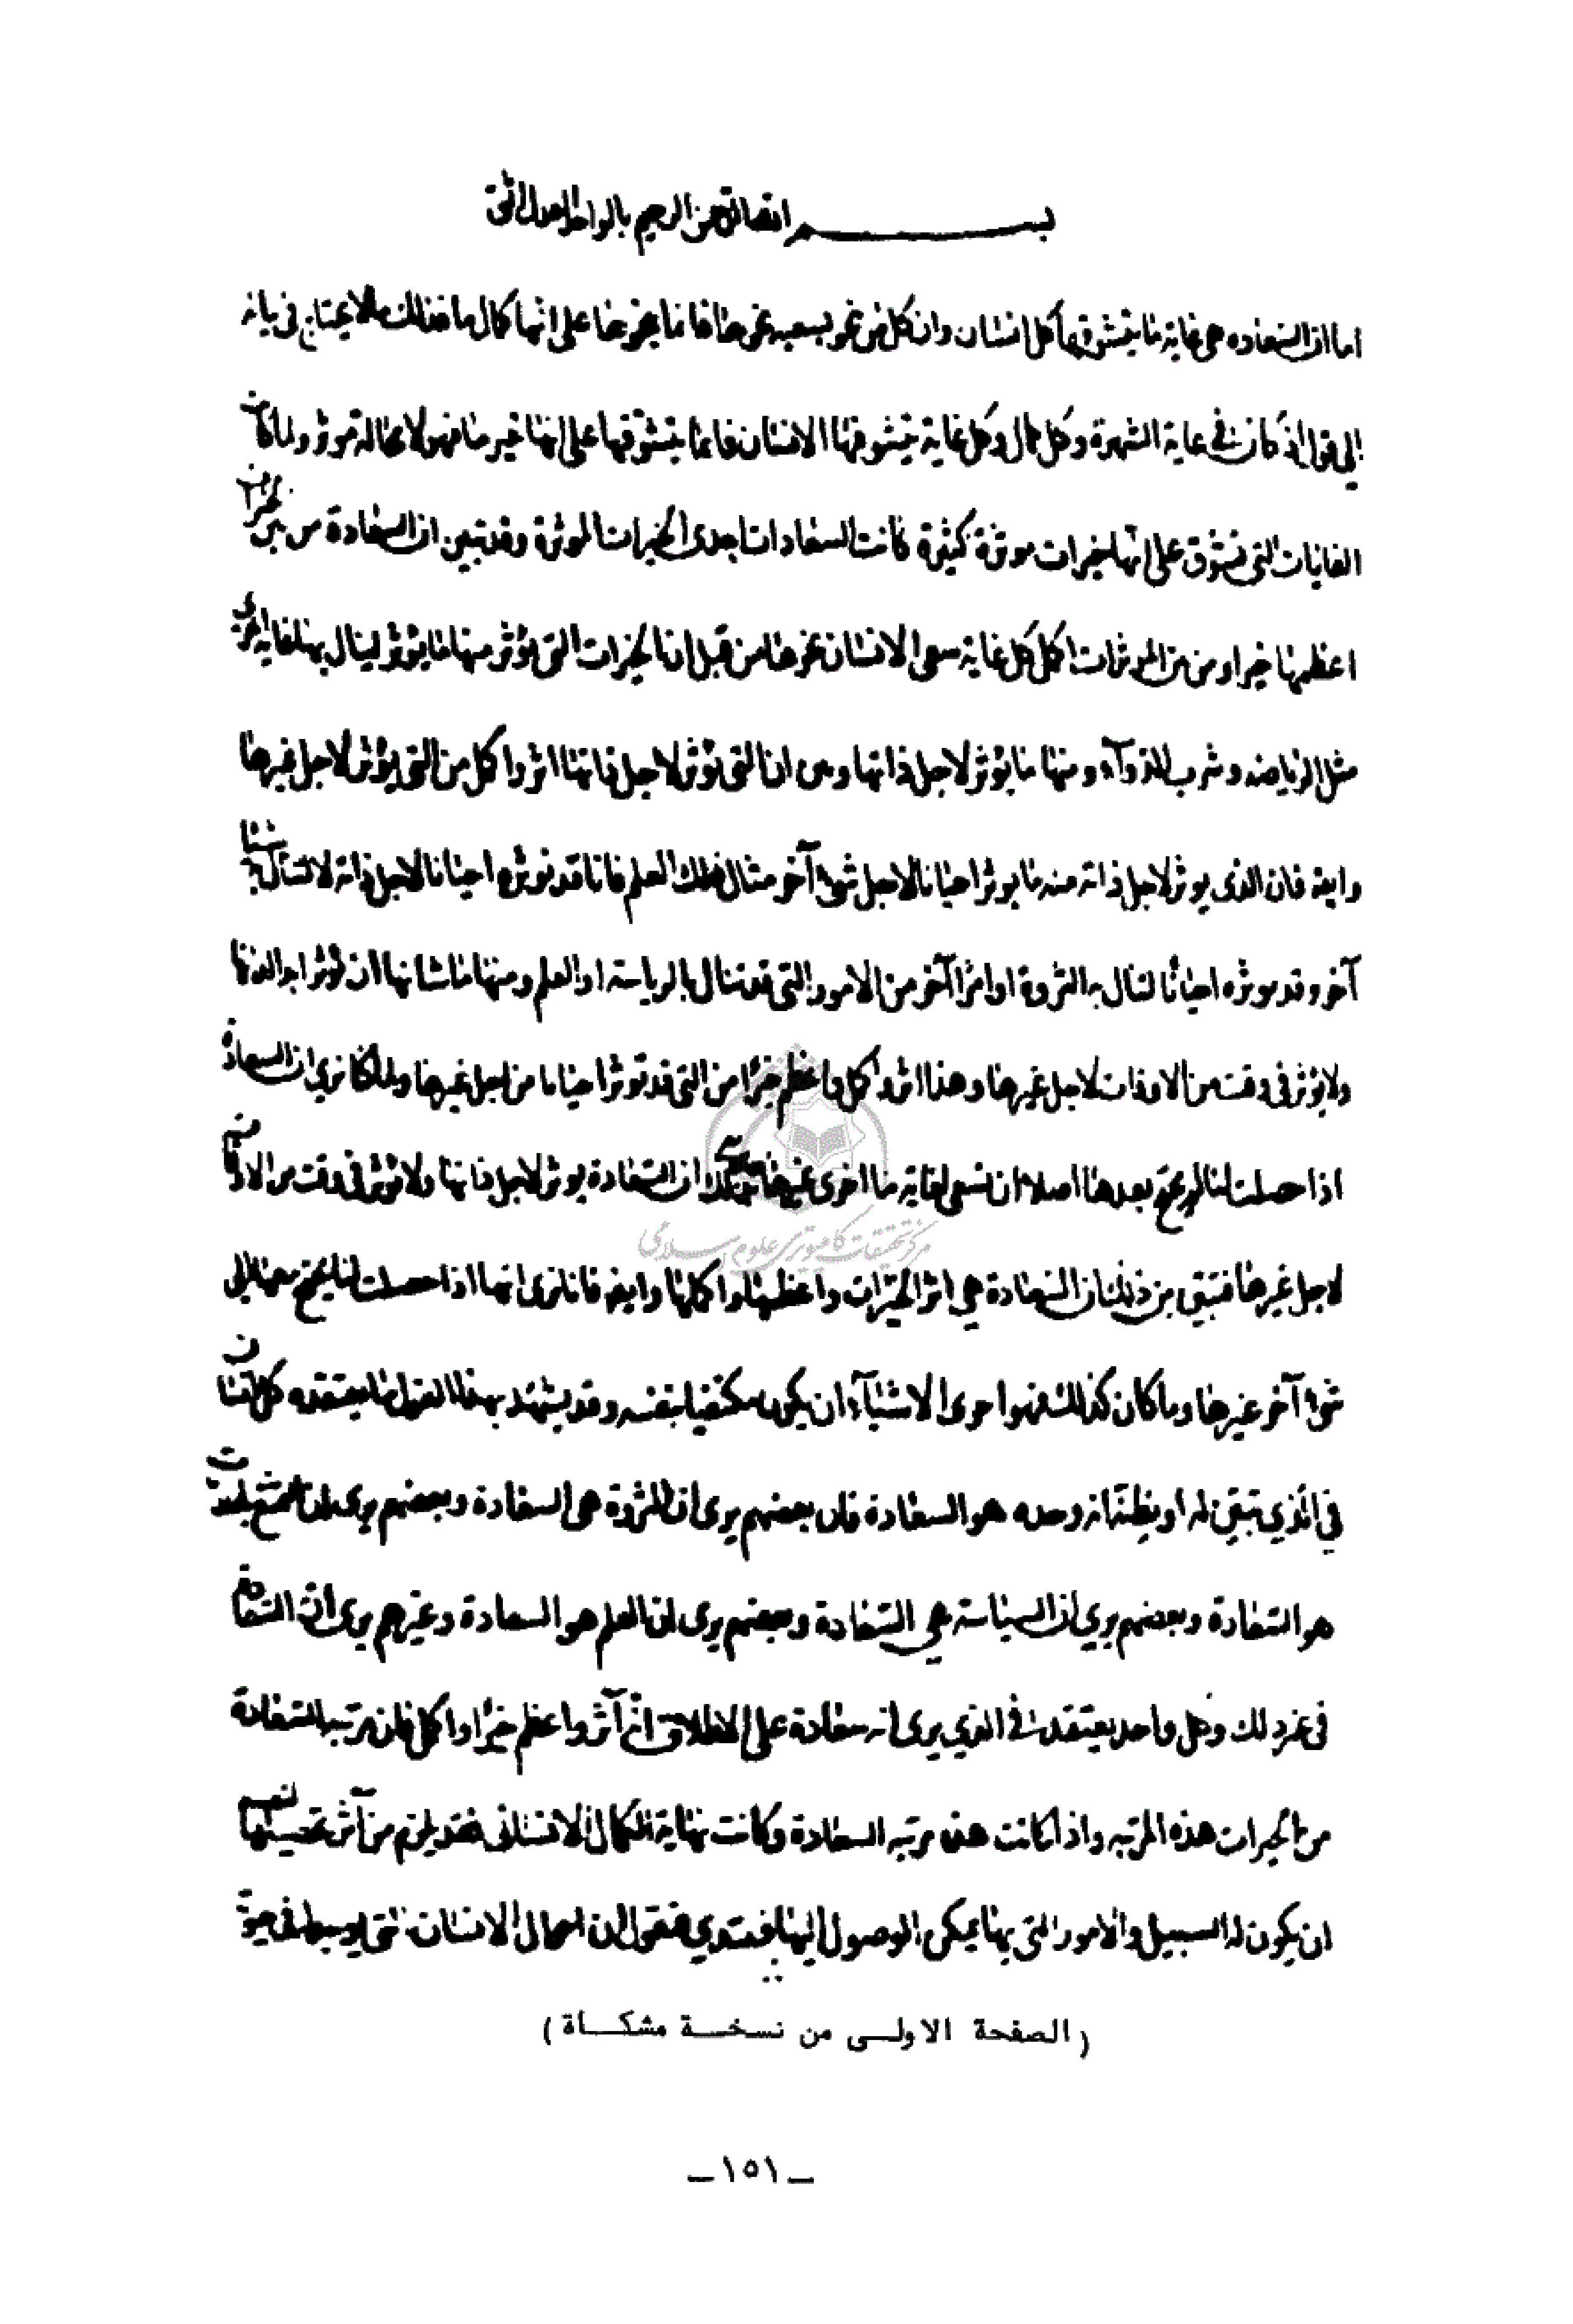 بسم الله الرحمن الرحيم بالواحد العدل اثق
اما ان السعاده هى غاية ما يتشوقها كل انسان وان كل من نحو بسعيه نحوها فانما ينحوها على انها كمال ما فذلك مالا يحتاج فى بيانه
الى قول اذ كان فى غاية الشهرة وكل كمال وكل غاية يتشوقها الانسان فانما يتشوقها على انها خير ما فهو لا محالة موثر ولما كانت
الغايات التى تشوق على انها خيرات موثرة كثيرة كانت السعادات احدى الخيرات الموثرة وقد تبين ان السعادة من بين الخيرات
اعظمها خيرا ومن بين الموثرات اكمل كل غاية سعى الانسان نحوها من قبل ان الخيرات التى يؤثر منها ما يؤثر لينال بها غاية اخرى
مثل الرياضه وشرب الدوآء ومنها ما يؤثر لاجل ذاتها وبين ان التى تؤثر لاجل ذاتها اثر واكمل من التى يؤثر لاجل غيرها
وايضا فان الذى يوثر لاجل ذاته منه ما يوثر احيانا لاجل شئ آخر مثال ذلك العلم فانا قد نوثره احيانا لاجل ذاته لا لننال به شيئا
آخر وقد نوثره احيانا لننال به الثروة او امرا آخر من الامور التى قد تنال بالرياسة او العلم ومنها ما شانها ان تؤثر ابدا لذاتها
ولا يؤثر فى وقت من الاوقات لاجل غيرها وهذا اثر واكمل واعظم خيرا من التى قد توثر احيانا من اجل غيرها ولما كنا نرى ان السعادة
اذا حصلت لنا لم نحتج بعدها اصلا ان نسعى لغاية ما اخرى غيرها ظهر بذلك ان السعادة يوثر لاجل ذاتها ولا تؤثر فى وقت من الاوقات
لاجل غيرها فتبين من ذلك ان السعادة هى اثر الخيرات واعظمها واكملها وايضا فانا نرى انها اذا حصلت لنا لم نحتج معها الى
شئ آخر غيرها وما كان كذلك فهو احرى الاشيآء ان يكون مكتفيا بنفسه وقد يشهد بهذا القول ما يعتقده كل انسان
فى الذي تبين له او يظن انه وحده هو السعادة فان بعضهم يرى ان الثروة هى السعادة وبعضهم يرى ان التمتع باللذات
هو السعادة وبعضهم يري ان السياسة هى السعادة وبعضهم يرى ان العلم هو السعادة وغيرهم يرى ان السعادة
فى غير ذلك وكل واحد يعتقد فى الذي يرى انه سعادة على الاطلاق انه آثر واعظم خيرا واكمل فان مرتبه السعادة
من الخيرات هذه المرتبه واذا كانت هذه مرتبه السعادة وكانت نهاية الكمال الانسانى فقد يلزم من آثر تحصيلها لنفسه
ان يكون له السبيل والامور التى بها يمكن الوصول اليها فنبتدي فنقول ان احوال الانسان التى
(الصفحة الاولى من نسخة مشكاة)
– ١٥١ –
مركز تحقيقات كامپيوترى علوم اسلامى